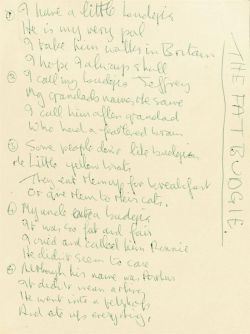 THE FAT BUDGIE.
① I have a little budgie
He is my very pal
I take him walks in Britain
I hope I always shall
② I call my budgie Jeffrey
My grandads name's the same
I call him after grandad
Who had a feathered brain
③ Some people don't like budgies
The little yellow brats
They eat them up for breakfast
Or give them to their cats.
④ My uncle ate a budgie
It was so fat and fair
I cried and called him Ronnie
He didn't seem to care
⑤ Although his name was Arthur
It didn't mean a thing
He went into a petshop
And ate up everything.